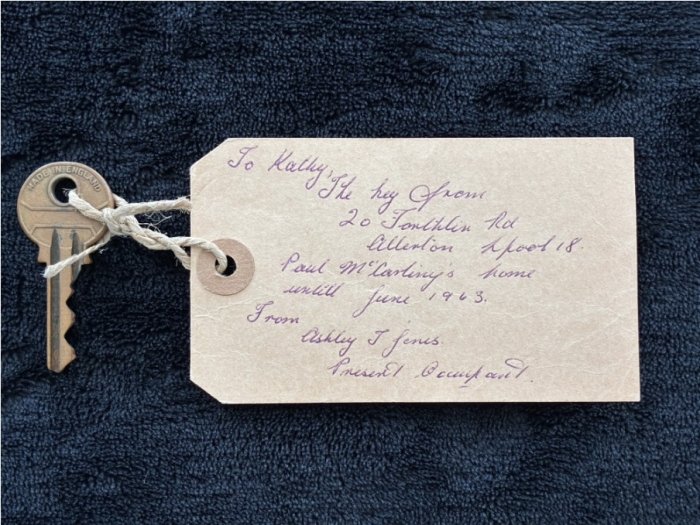 MADE IN ENGLAND
To Kathy,
The key from
20 Forthlin Rd
Allerton Lpool 18.
Paul McCartney's home
untill June 1963.
From
Ashley T Jones
Present Occupant.